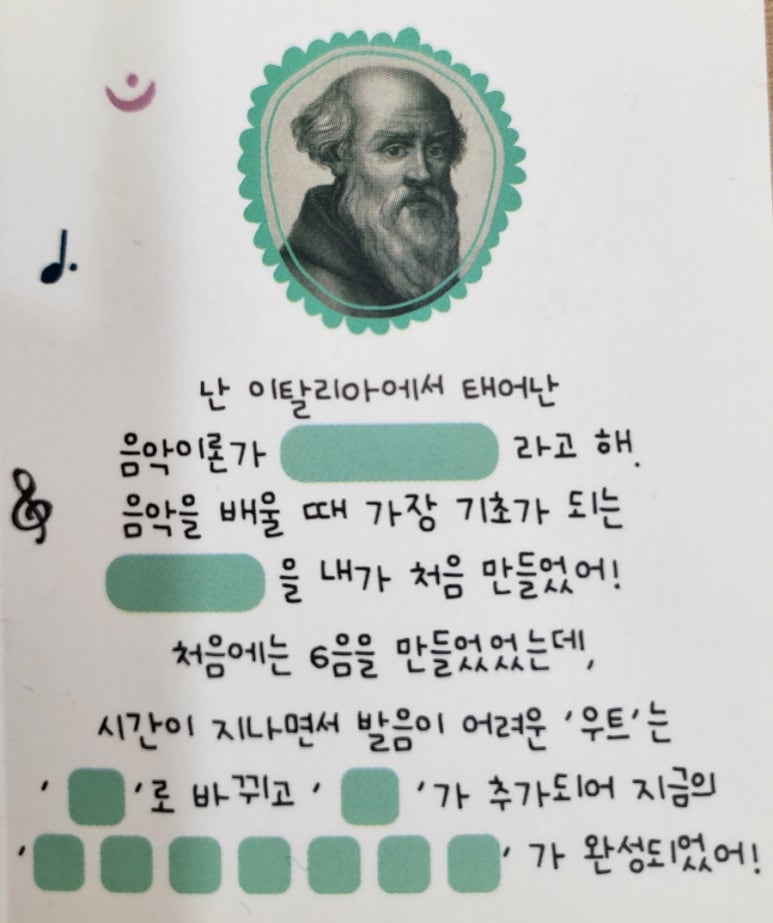 난 이탈리아에서 태어난
음악이론가 라고 해.
음악을 배울 때 가장 기초가 되는
을 내가 처음 만들었어!
처음에는 6음을 만들었었는데,
시간이 지나면서 발음이 어려운 '우트'는
' '로 바뀌고 ' '가 추가되어 지금의
' '가 완성되었어!